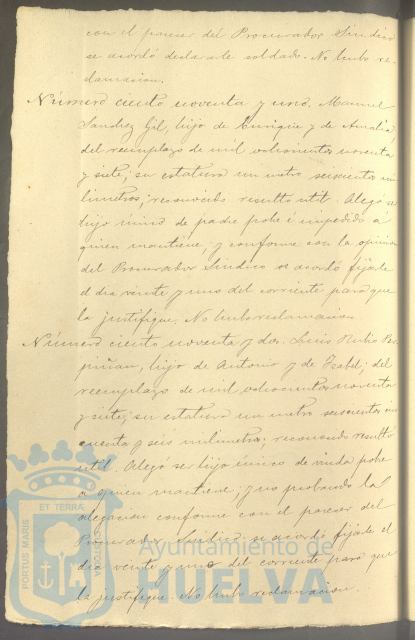 con el parecer del Procurador Sindico
se acordó declararle soldado. No hubo re-
clamacion.
Número ciento noventa y uno, Manuel
Sanchez Gil, hijo de Enrique y de Amalia,
del reemplazo de mil ochocientos noventa
y siete; su estatura un metro seiscientos mi
limetros; reconocido resultó util. Alegó ser
hijo único de padre pobre é impedido á
quien mantiene; y conforme con la opinion
del Procurador Sindico se acordó fijarle
el dia veinte y uno del corriente para que
lo justifique. No hubo reclamacion.
Número ciento noventa y dos. Luis Rubio
hijo de Antonio y de Isabel; del
reemplazo de mil ochocientos noventa
y siete; su estatura un metro seiscientos cin
cuenta y seis milimetros; reconocido resultó
util. Alegó ser hijo único de viuda pobre
a quien mantiene; y no probando la
alegacion conforme con el parecer del
Procurador Sindico se acordó fijarle el
dia veinte y uno del corriente para que
lo justifique. No hubo reclamacion.
PORTUS MARIS ET TERRAE CUSTODIA
Ayuntamiento de
HUELVA